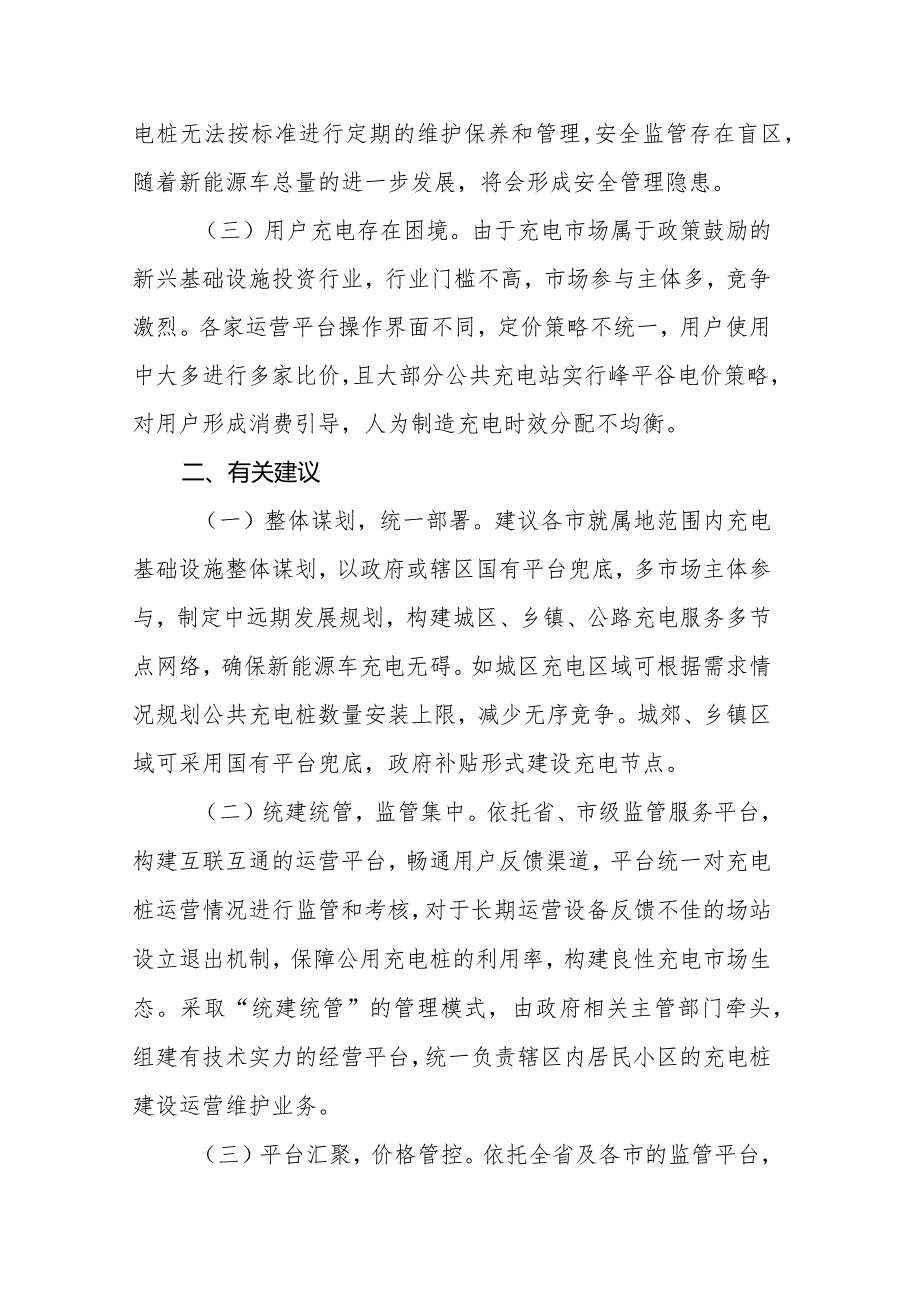 电桩无法按标准进行定期的维护保养和管理,安全监管存在盲区,
随着新能源车总量的进一步发展，将会形成安全管理隐患。
（三）用户充电存在困境。由于充电市场属于政策鼓励的
新兴基础设施投资行业，行业门槛不高，市场参与主体多，竞争
激烈。各家运营平台操作界面不同，定价策略不统一，用户使用
中大多进行多家比价,且大部分公共充电站实行峰平谷电价策略,
对用户形成消费引导，人为制造充电时效分配不均衡。
二、有关建议
（一）整体谋划，统一部署。建议各市就属地范围内充电
基础设施整体谋划，以政府或辖区国有平台兜底，多市场主体参
与，制定中远期发展规划，构建城区、乡镇、公路充电服务多节
点网络，确保新能源车充电无碍。如城区充电区域可根据需求情
况规划公共充电桩数量安装上限，减少无序竞争。城郊、乡镇区
域可采用国有平台兜底，政府补贴形式建设充电节点。
（二）统建统管，监管集中。依托省、市级监管服务平台，
构建互联互通的运营平台，畅通用户反馈渠道，平台统一对充电
桩运营情况进行监管和考核，对于长期运营设备反馈不佳的场站
设立退出机制，保障公用充电桩的利用率，构建良性充电市场生
态。采取“统建统管”的管理模式，由政府相关主管部门牵头，
组建有技术实力的经营平台，统一负责辖区内居民小区的充电桩
建设运营维护业务。
（三）平台汇聚，价格管控。依托全省及各市的监管平台，